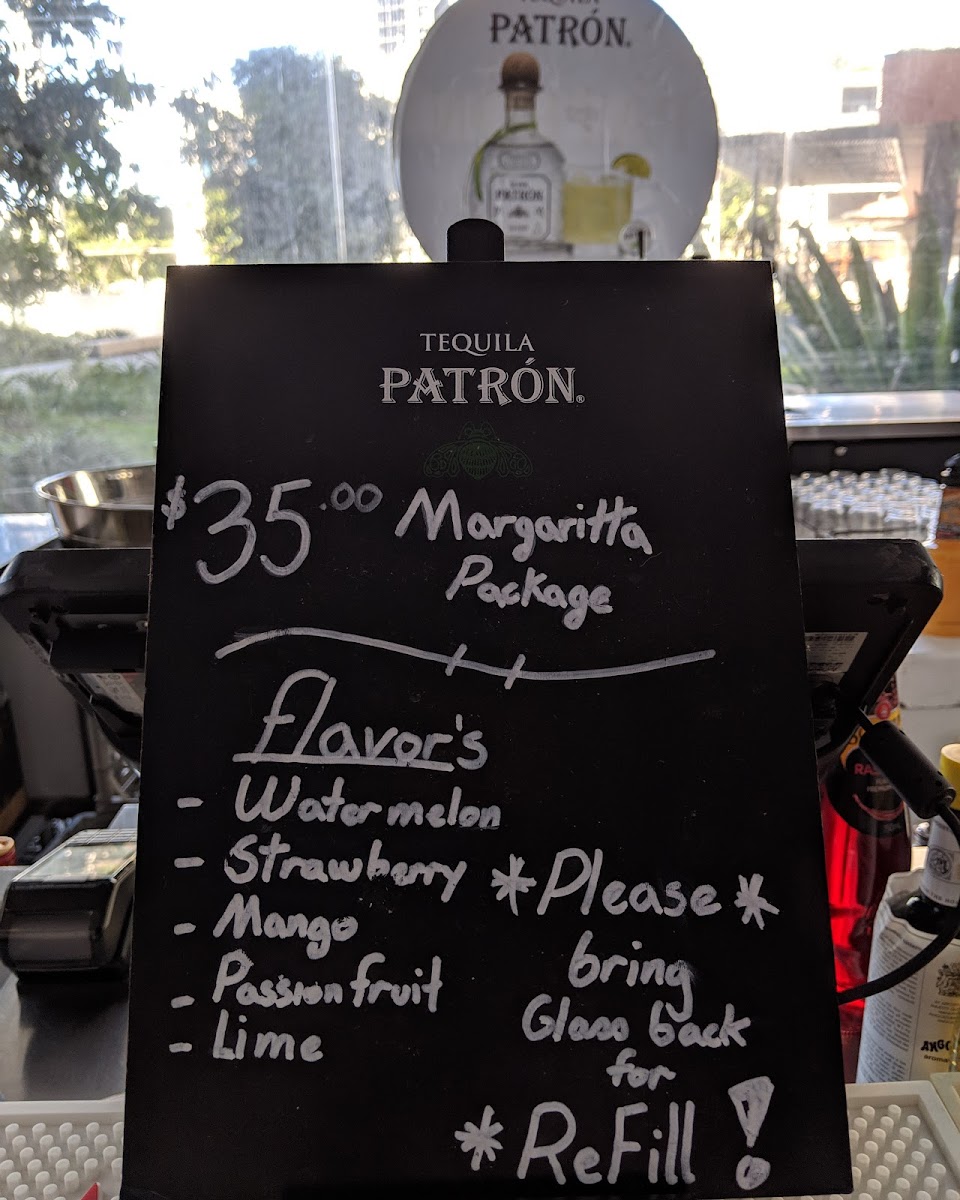 PATRÓN.
PATRÓN
TEQUILA
PATRÓN®
$35.00 Margaritta
Package
Flavor's
- Watermelon
- Strawberry
- Mango
- Passion fruit
- Lime
*Please*
bring
Glass back
for
*ReFill!